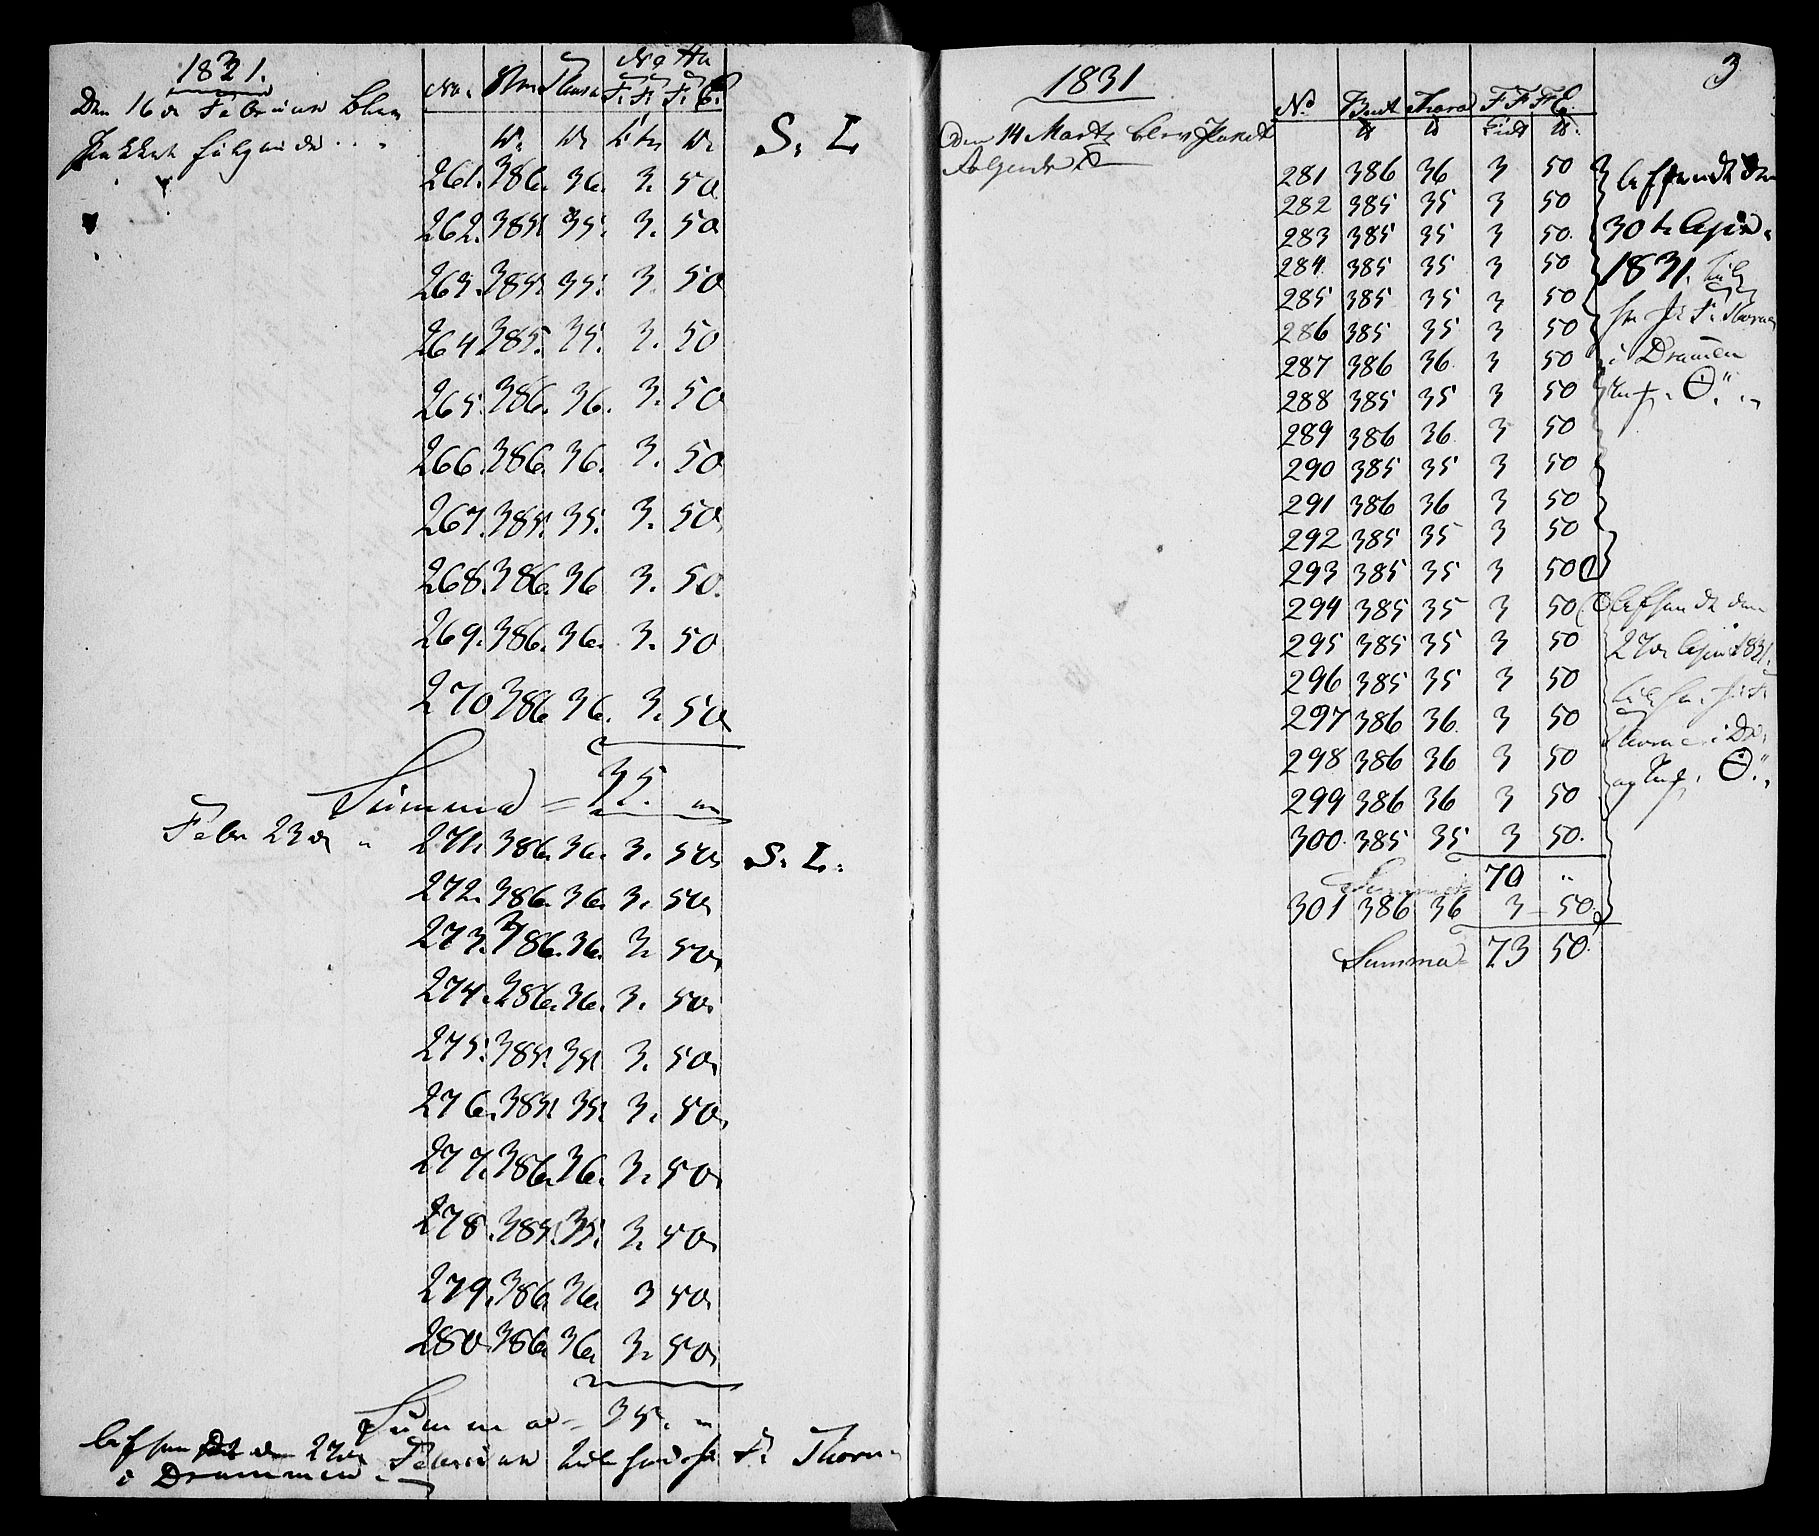 1831.
Den 16de Februar blev
Pakket følgende
No. Netto
F. F. F. C.
S. L
261. 386. 36. 3. 50
262. 385. 35. 3. 50
263. 385. 35. 3. 50
264 385. 35. 3. 50
265. 386. 36. 3. 50
266. 386. 36. 3. 50
267. 385. 35. 3. 50
268. 386. 36 3. 50.
269. 386. 36. 3. 50
270 386 36. 3. 50
Summa = 35. "
Febr 23de " 271. 386. 36. 3. 50 S. L.
272. 386. 36. 3. 50
273. 386. 36. 3. 50
274. 386. 36. 3. 50.
275. 385. 35. 3. 50
276. 385. 35. 3. 50
277. 386. 36. 3. 50
278. 385. 35. 3. 50
279. 386. 36. 3 50
280. 386. 36. 3. 50
Summa = 35. "
Afsendt den 27de Februar til F. Thorne
i Drammen
3
1831
den 14 Marts blev Paket
følgende
No Brut Thara F F F C.
281 386 36 3 50 Afsendt den
282 385 35 3 50
283 385 35 3 50. 30te April
284. 385 35 3 50 1831. til
285 385 35 3 50
286 385 35 3 50 F. Thorne
287 386 36. 3 50 i Dramen
288 385 35 3 50
289 386 36. 3 50
290 385 35 3 50
291 386 36 3 50
292 385 35 3 50
293 385 35 3 50
294 385 35 3 50 Afsendt den
295 385 35 3 50 27de April 1831.
296 385 35 3 50
297 386 36. 3 50 Thorne i
298 386 36 3 50
299 386 36 3 50
300. 385 35 3 50.
Summa 70 "
301 386 36 3 50.
Summa 73 50.